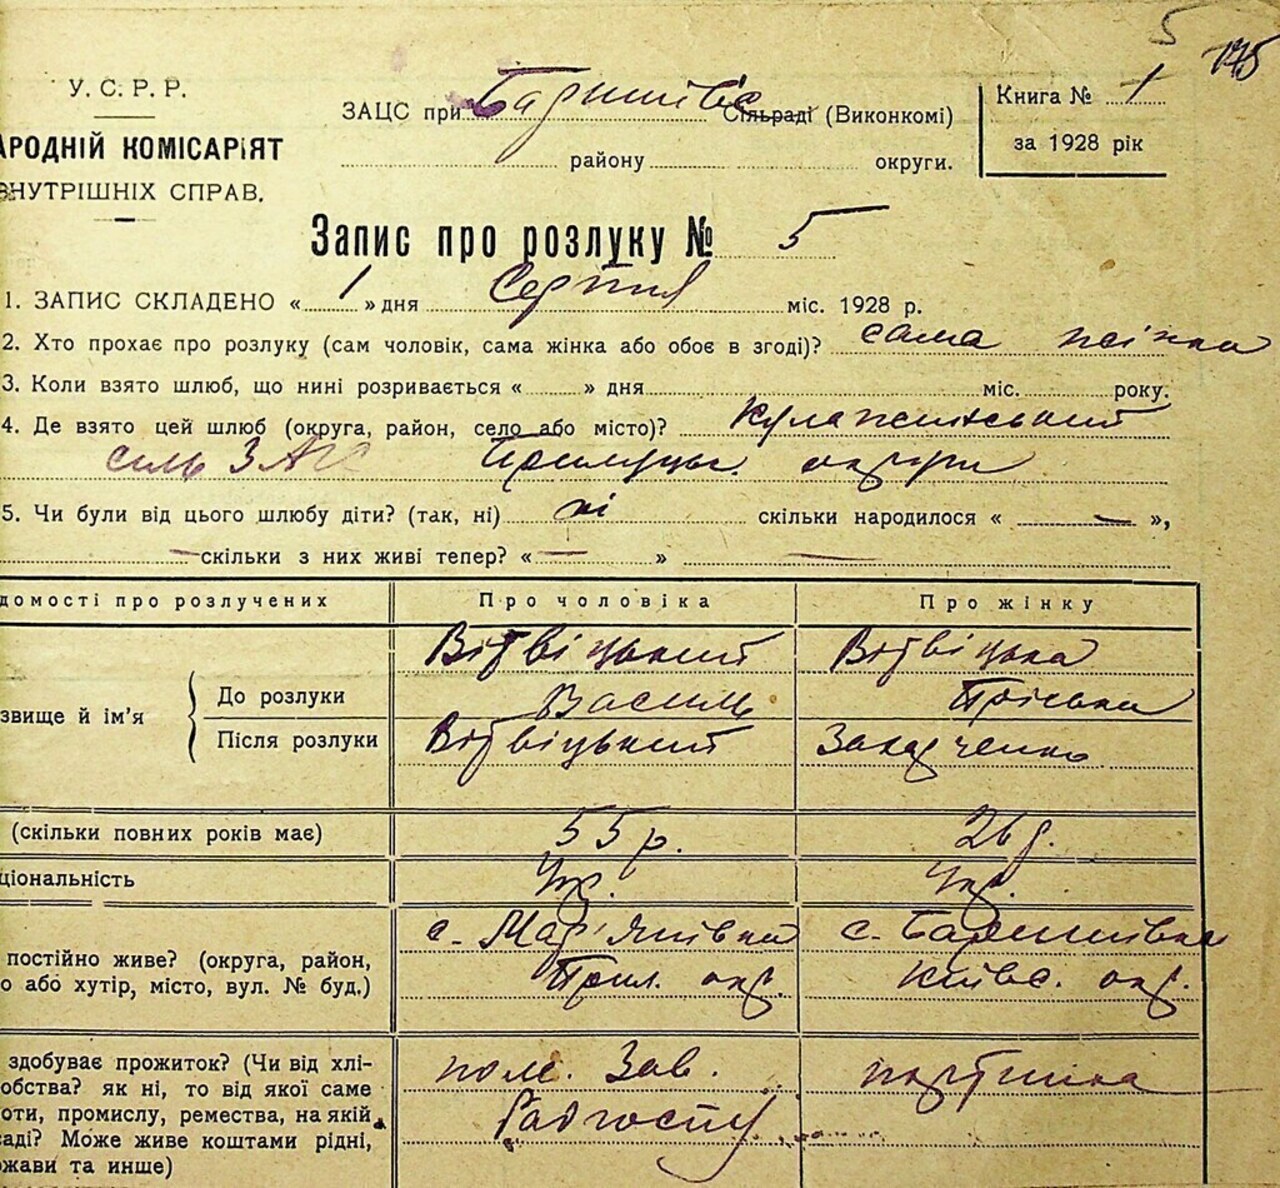 5 175
У. С. Р. Р.
АРОДНІЙ КОМІСАРІЯТ
ВНУТРІШНІХ СПРАВ.
ЗАЦС при Баришівс Сільраді (Виконкомі)
району округи.
Книга № 1
за 1928 рік
Запис про розлуку № 5
1. ЗАПИС СКЛАДЕНО « 1 » дня Серпня міс. 1928 р.
2. Хто прохає про розлуку (сам чоловік, сама жінка або обоє в згоді)? сама жінка
3. Коли взято шлюб, що нині розривається « » дня міс. року.
4. Де взято цей шлюб (округа, район, село або місто)? Кулажинський
силь ЗАГС Прилуцьк. округи
5. Чи були від цього шлюбу діти? (так, ні) ні скільки народилося « — »,
— скільки з них живі тепер? « — » —
домості про розлучених Про чоловіка Про жінку
Вітвіцький Вітвіцька
звище й ім’я До розлуки Василь Пріська
Після розлуки Вітвіцький Захарченко
(скільки повних років має) 55 р. 26 р.
ціональність Укр. Укр.
с. Мар’янівка с. Баришівка
постійно живе? (округа, район,
о або хутір, місто, вул. № буд.) Прил. окр. Київс. окр.
здобуває прожиток? (Чи від хлі-
обства? як ні, то від якої саме
оти, промислу, ремества, на якій
саді? Може живе коштами рідні,
жави та инше)
пом. Зав.
Радгоспу